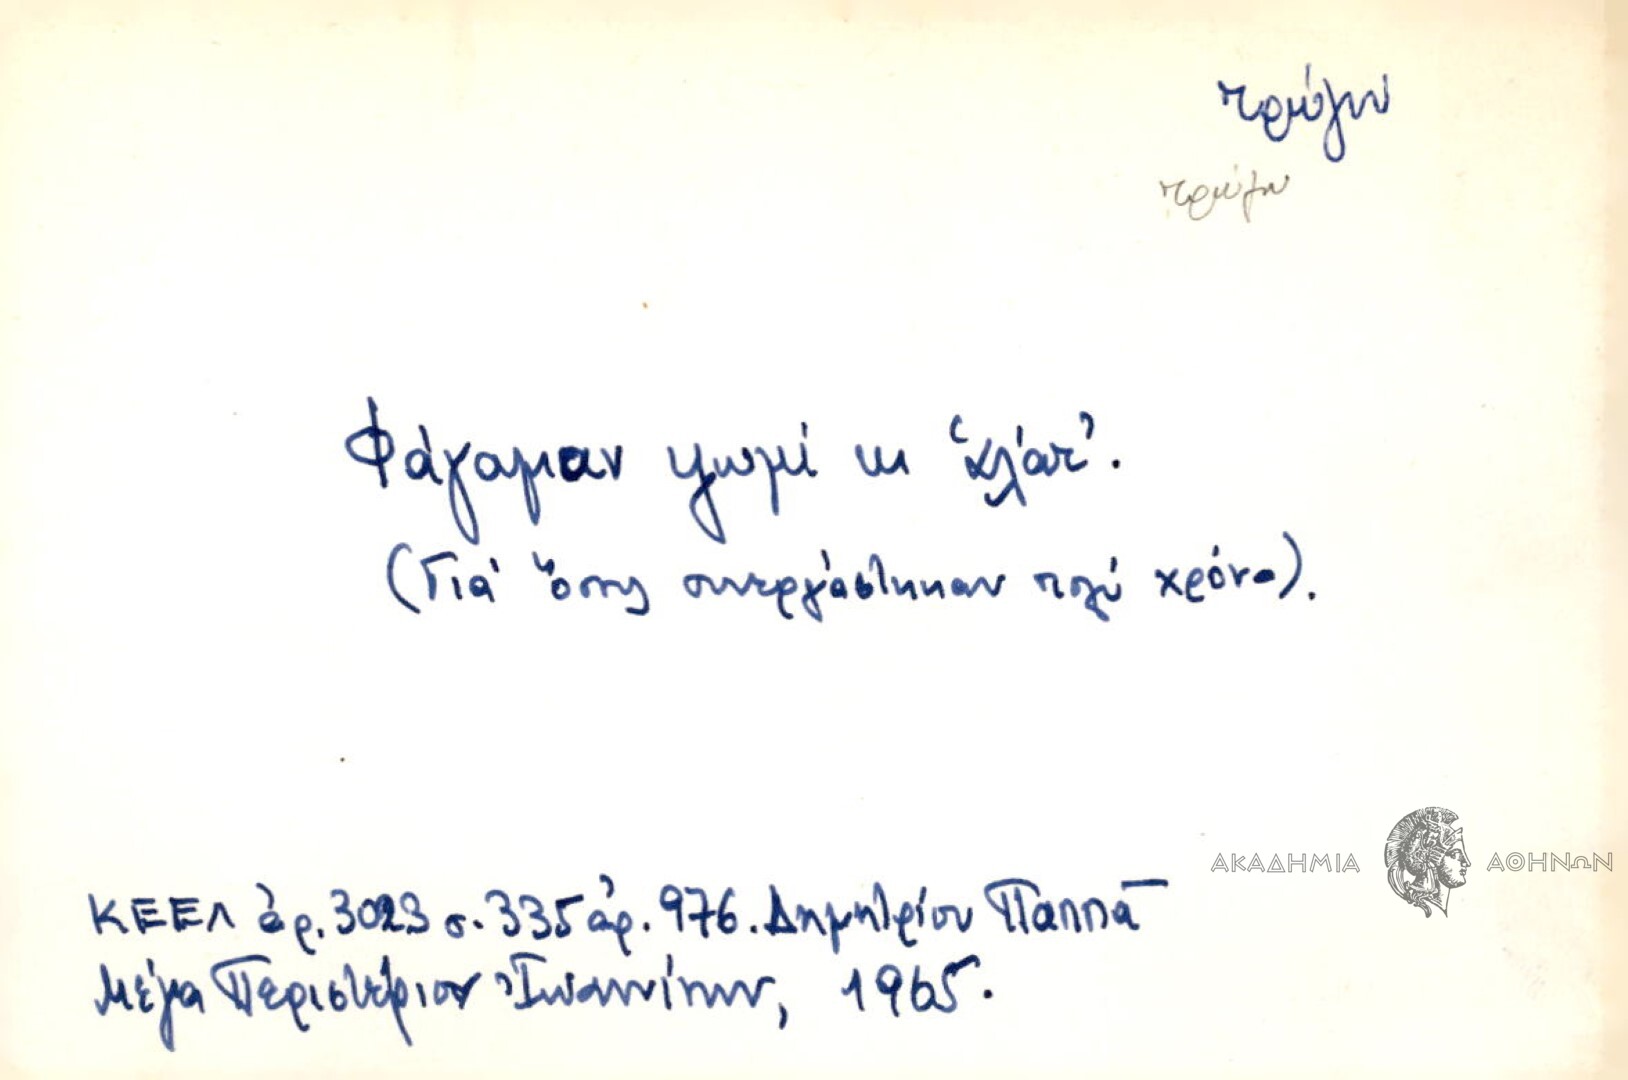 τρώγω
τρώγω
Φάγαμαν ψωμί κι ἁλάτ'.
(Γιά ὅσους συνεργάστηκαν πολύ χρόνο).
ΚΕΕΛ ἀρ. 3023 σ. 335 ἀρ. 976. Δημητρίου Παππᾶ
Μέγα Περιστέριον Ἰωαννίνων, 1965.
ΑΚΑΔΗΜΙΑ ΑΘΗΝΩΝ